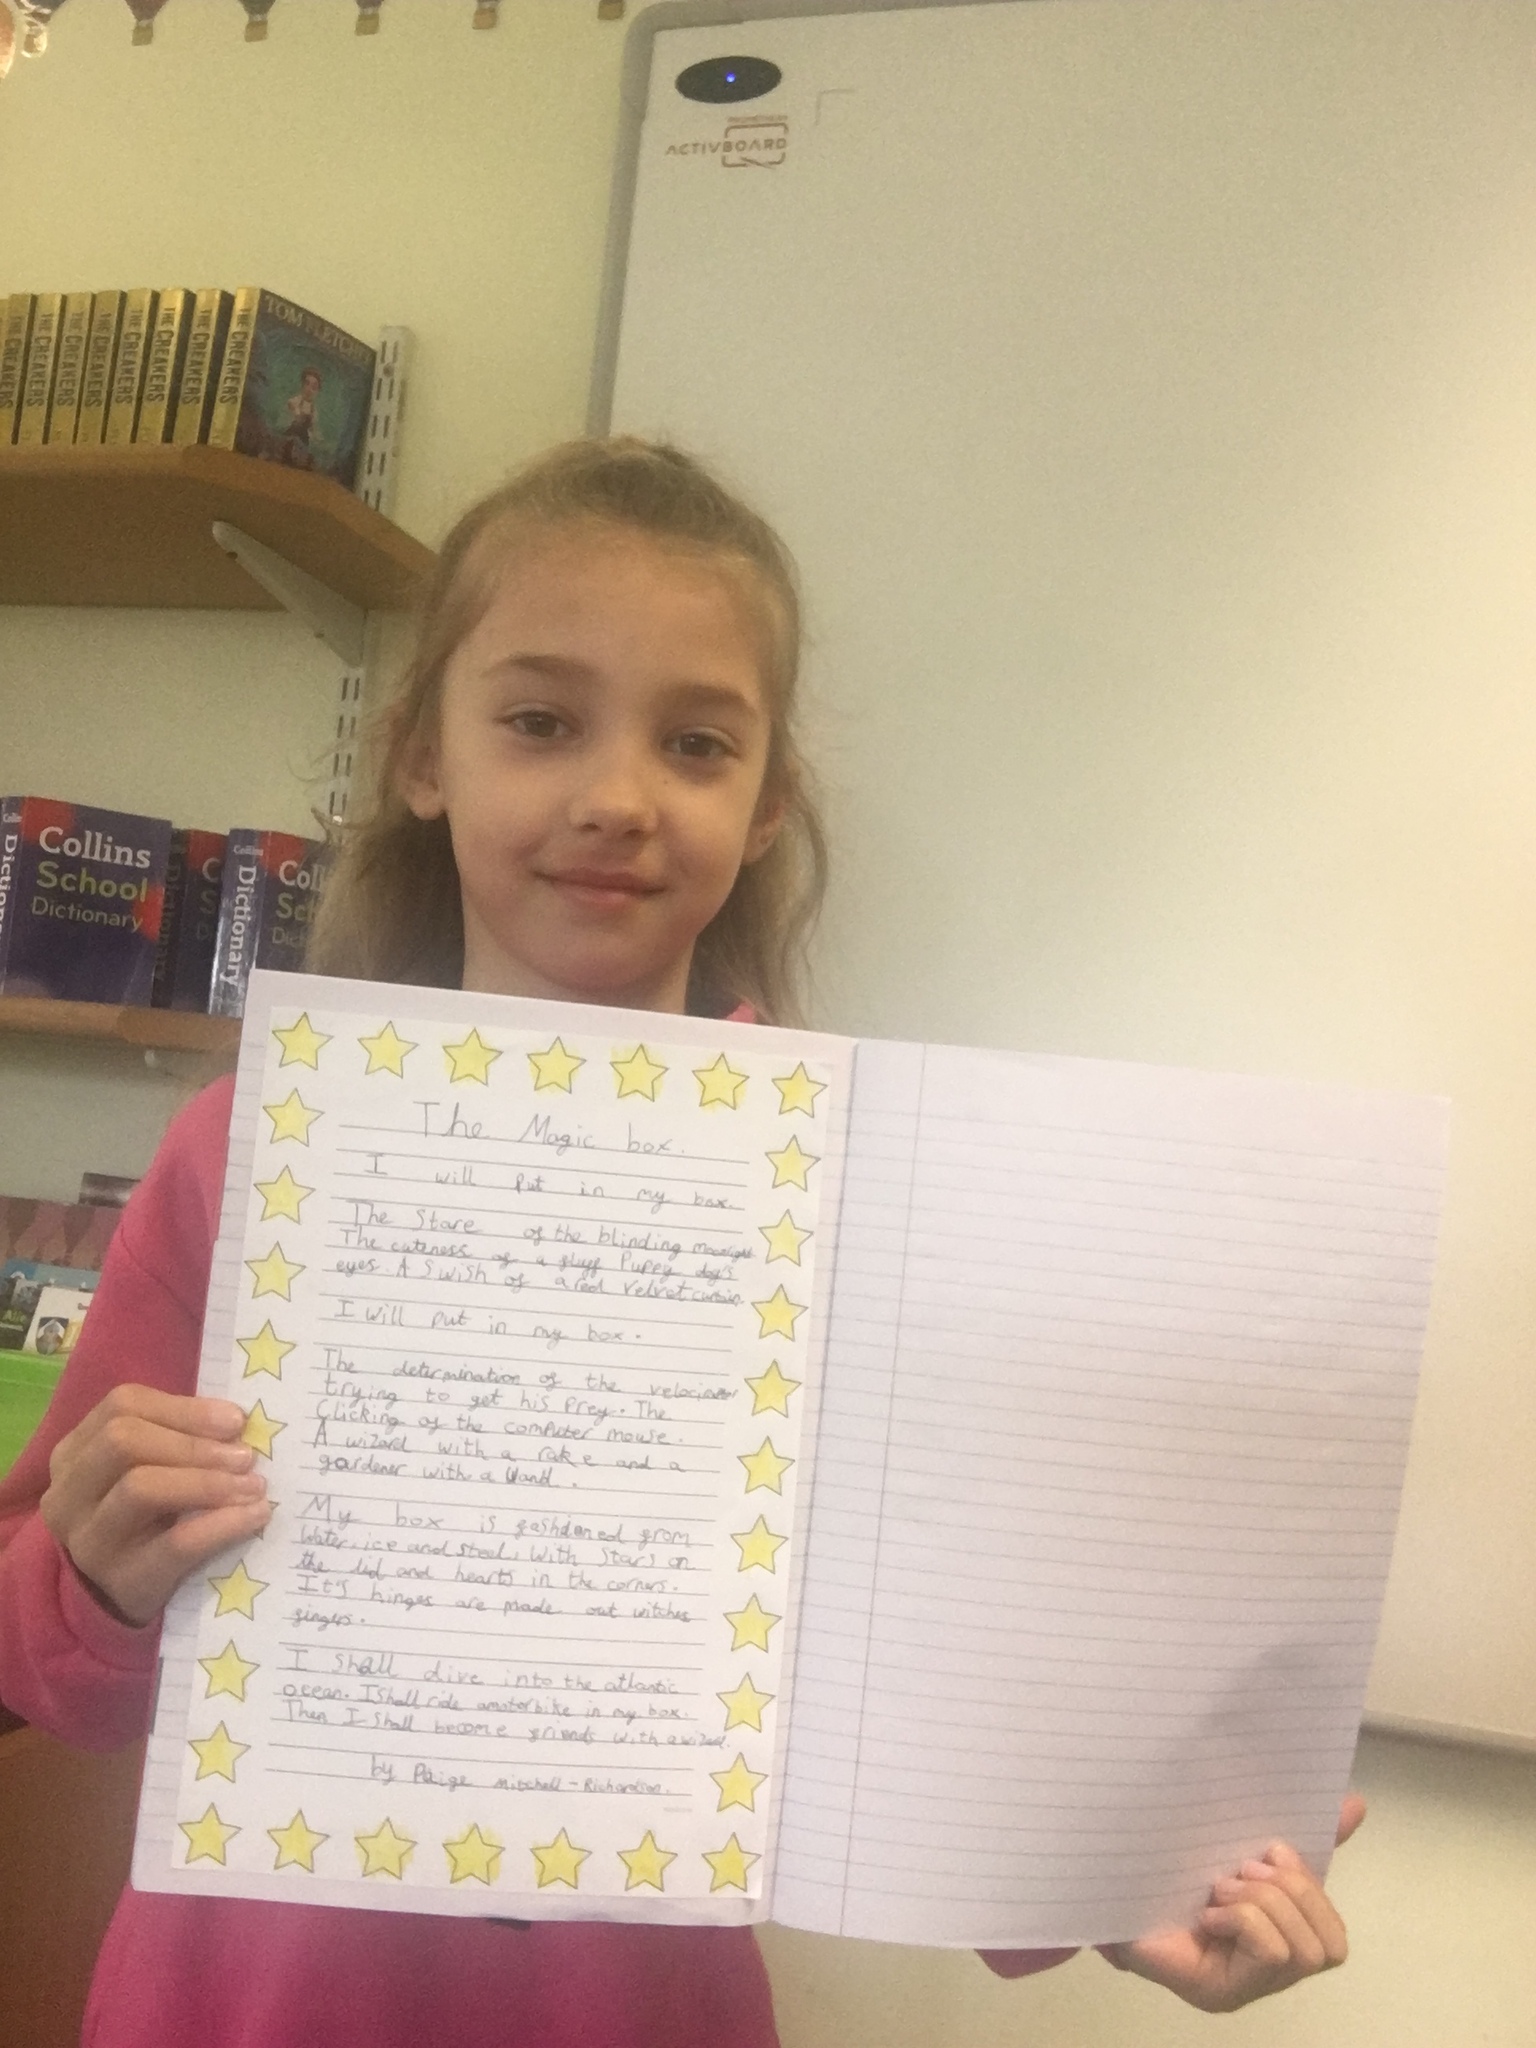 PROMETHEAN
ACTIVBOARD
TOM FLETCHER
THE CREAKERS
THE CREAKERS
THE CREAKERS
THE CREAKERS
THE CREAKERS
THE CREAKERS
THE CREAKERS
THE CREAKERS
Collins
School
Dictionary
Dictionary
Collins
Dictionary
The Magic box.
I will put in my box.
The Stare of the blinding moonlight
The cuteness of a fluff Puppy dog's
eyes. A Swish of a red velvet curtain.
I will put in my box.
The determination of the
trying to get his prey. The
Clicking of the computer mouse.
A wizard with a rake and a
gardener with a Wand.
My box is fashioned from
Water, ice and steel, With Stars on
the lid and hearts in the corners.
It's hinges are made out witches
fingers.
I Shall dive into the atlantic
ocean. I Shall ride a motorbike in my box.
Then I Shall become friends with a wizard.
by Paige Mitchell-Richardson.